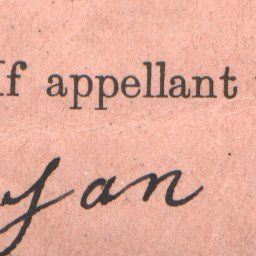 If appellant
yan